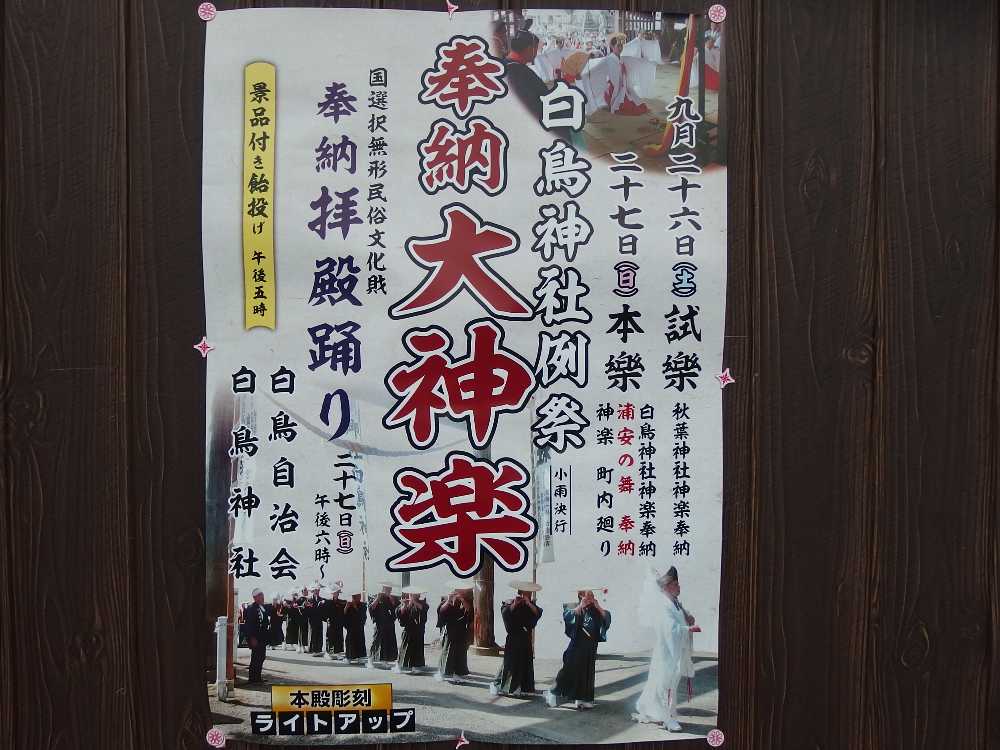 九月二十六日(土)試樂
秋葉神社神楽奉納
二十七日(日)本樂
白鳥神社神楽奉納
浦安の舞 奉納
神楽 町内廻り
白鳥神社例祭
小雨決行
奉納大神楽
国選択無形民俗文化財
奉納拝殿踊り
二十七日(日)
午後六時~
景品付き飴投げ 午後五時
白鳥自治会
白鳥神社
本殿彫刻
ライトアップ